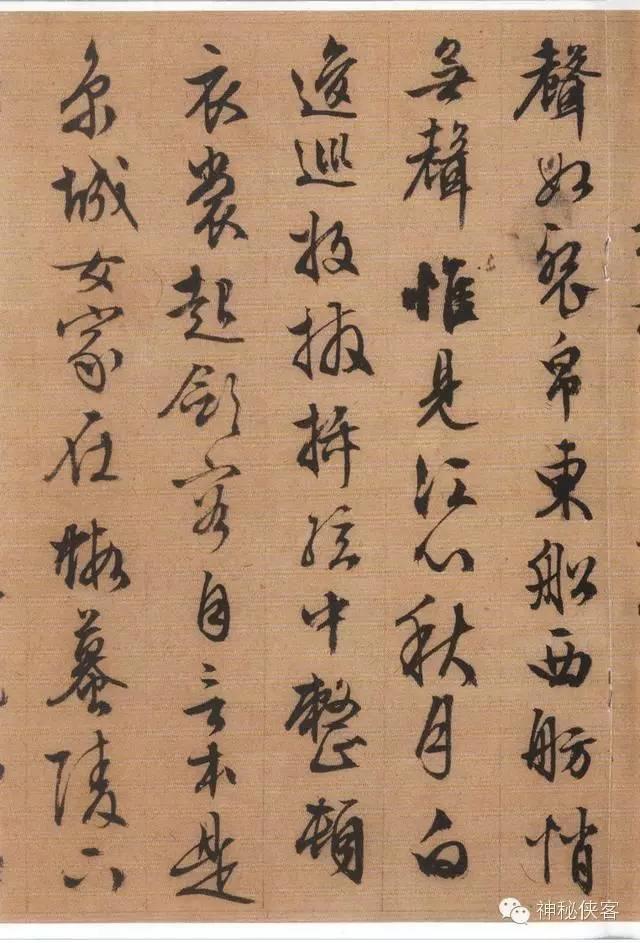 聲如裂帛東船西舫悄
無聲惟見江心秋月白
逡巡放撥插絃中整頓
衣裳起斂容自言本是
京城女家在蝦蟇陵下
神秘侠客